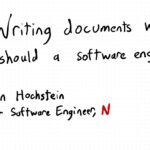 Writing documents w
should a software eng
n Hochstein
Software Engineer, N